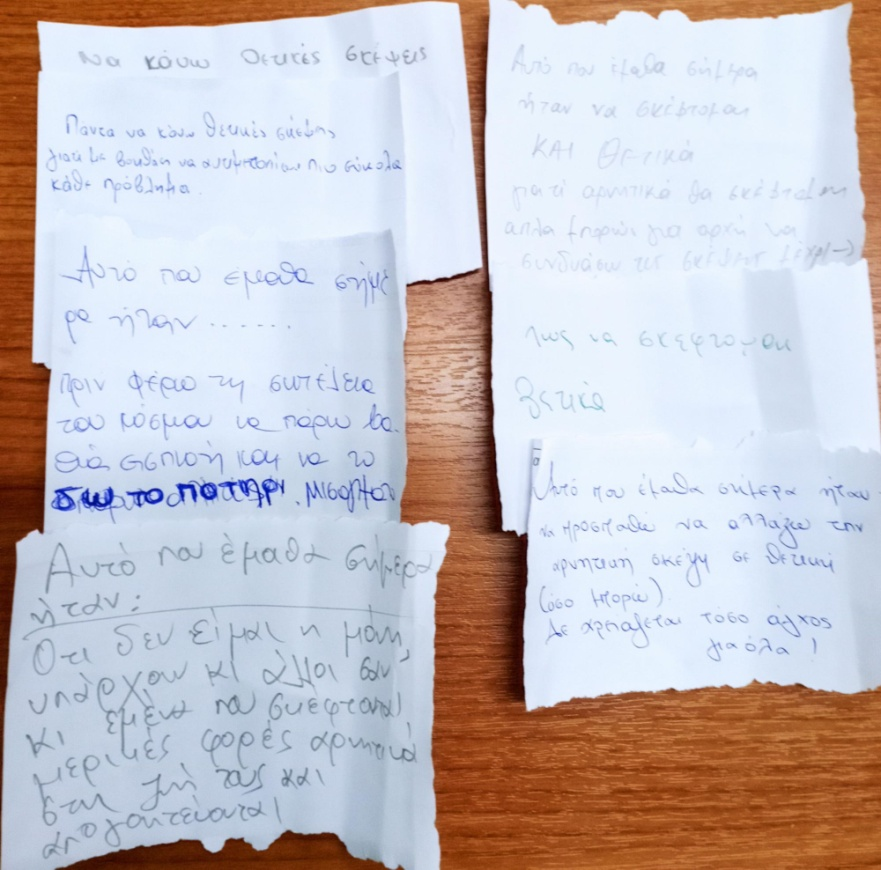 Να κάνω θετικές σκέψεις
Πάντα να κάνω θετικές σκέψης
γιατί με βοηθάει να αντιμετωπίσω πιο εύκολα
κάθε πρόβλημα.
Αυτό που έμαθα σήμε
ρα ήταν ......
πριν φέρω τη συντέλεια
του κόσμου να πάρω βα
θιά
και να το
δω το ποτηρι. Μισογεμάτο
Αυτό που έμαθα σήμερα
ήταν:
Οτι δεν είμαι η μόνη,
υπάρχουν κι άλλοι σαν
κι εμένα που σκέφτονται
μερικές φορές αρνητικά
στη ζωή τους και
απογοητεύονται
Αυτό που έμαθα σήμερα
ήταν να σκέφτομαι
ΚΑΙ θετικά
γιατί αρνητικά θα σκέφτομαι
απλα μπορώ για αρχή να
συνδυάσω τις σκέψης
Πως να σκεφτομαι
θετικά
Αυτό που έμαθα σήμερα ήταν
να προσπαθώ να αλλάζω την
αρνητική σκέψη σε θετική
(όσο μπορώ).
Δε χρειάζεται τόσο άγχος
για όλα !